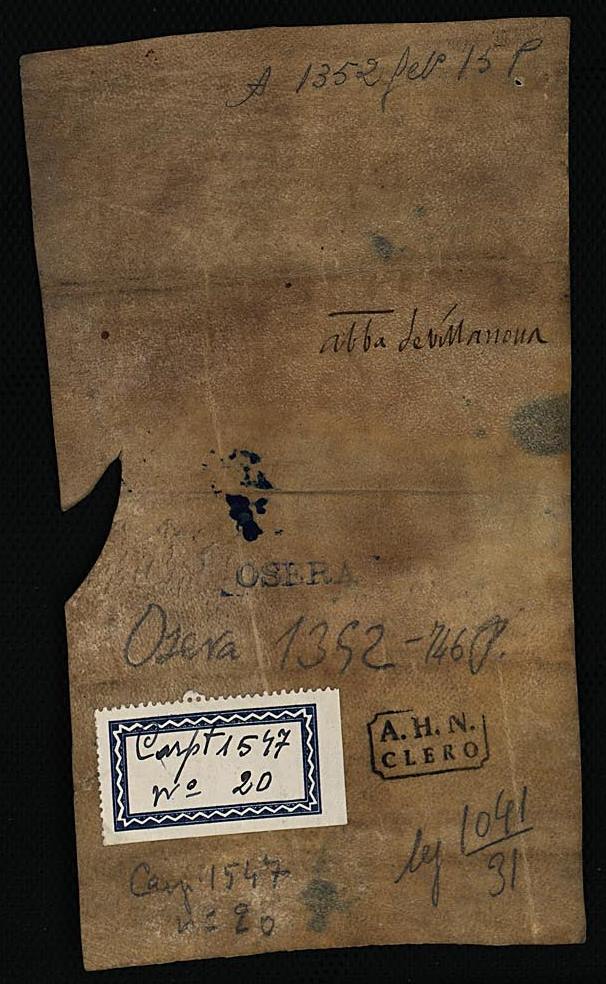 A 1352 feb 15 P
abba de villanoua
OSERA
Osera 1352 - 746 P.
Carpt 1547
nº 20
A. H. N.
CLERO
leg 1041
31
Carp 1547
nº 20